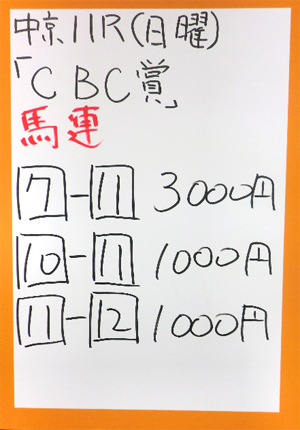 中京11R(日曜)
「CBC賞」
馬連
7-11 3000円
10-11 1000円
11-12 1000円